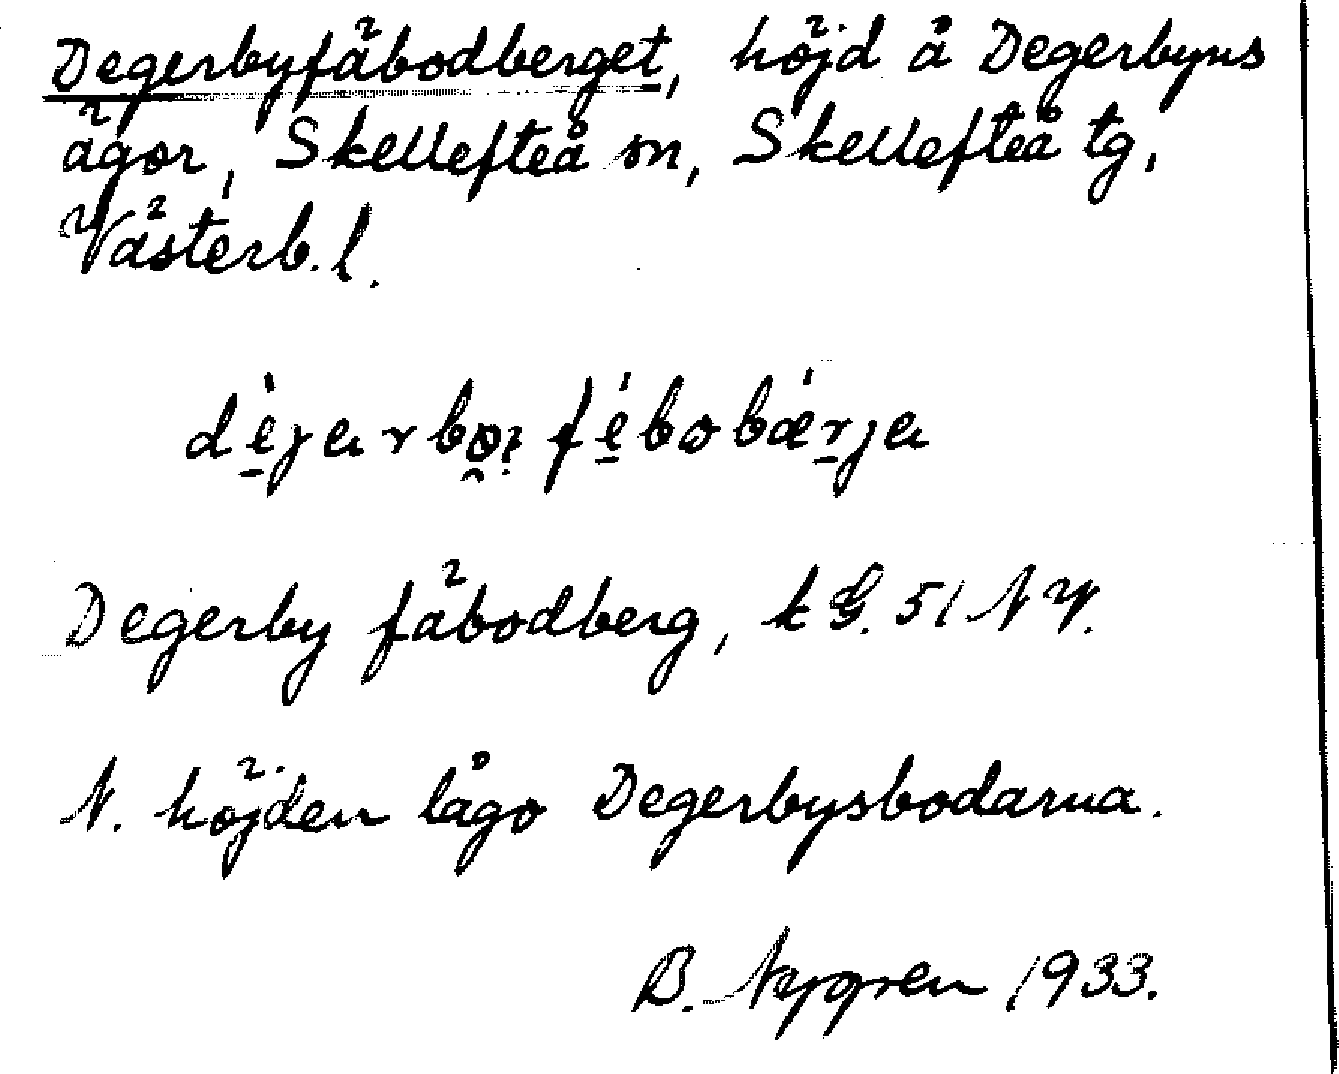 Degerbyfäbodberget, höjd å Degerbyns
ägor, Skellefteå sn, Skellefteå tg,
Västerb. l.
Degerby fäbodberg, k G. 51 NV.
N. höjden lågo Degerbysbodarna.
B. Nygren 1933.